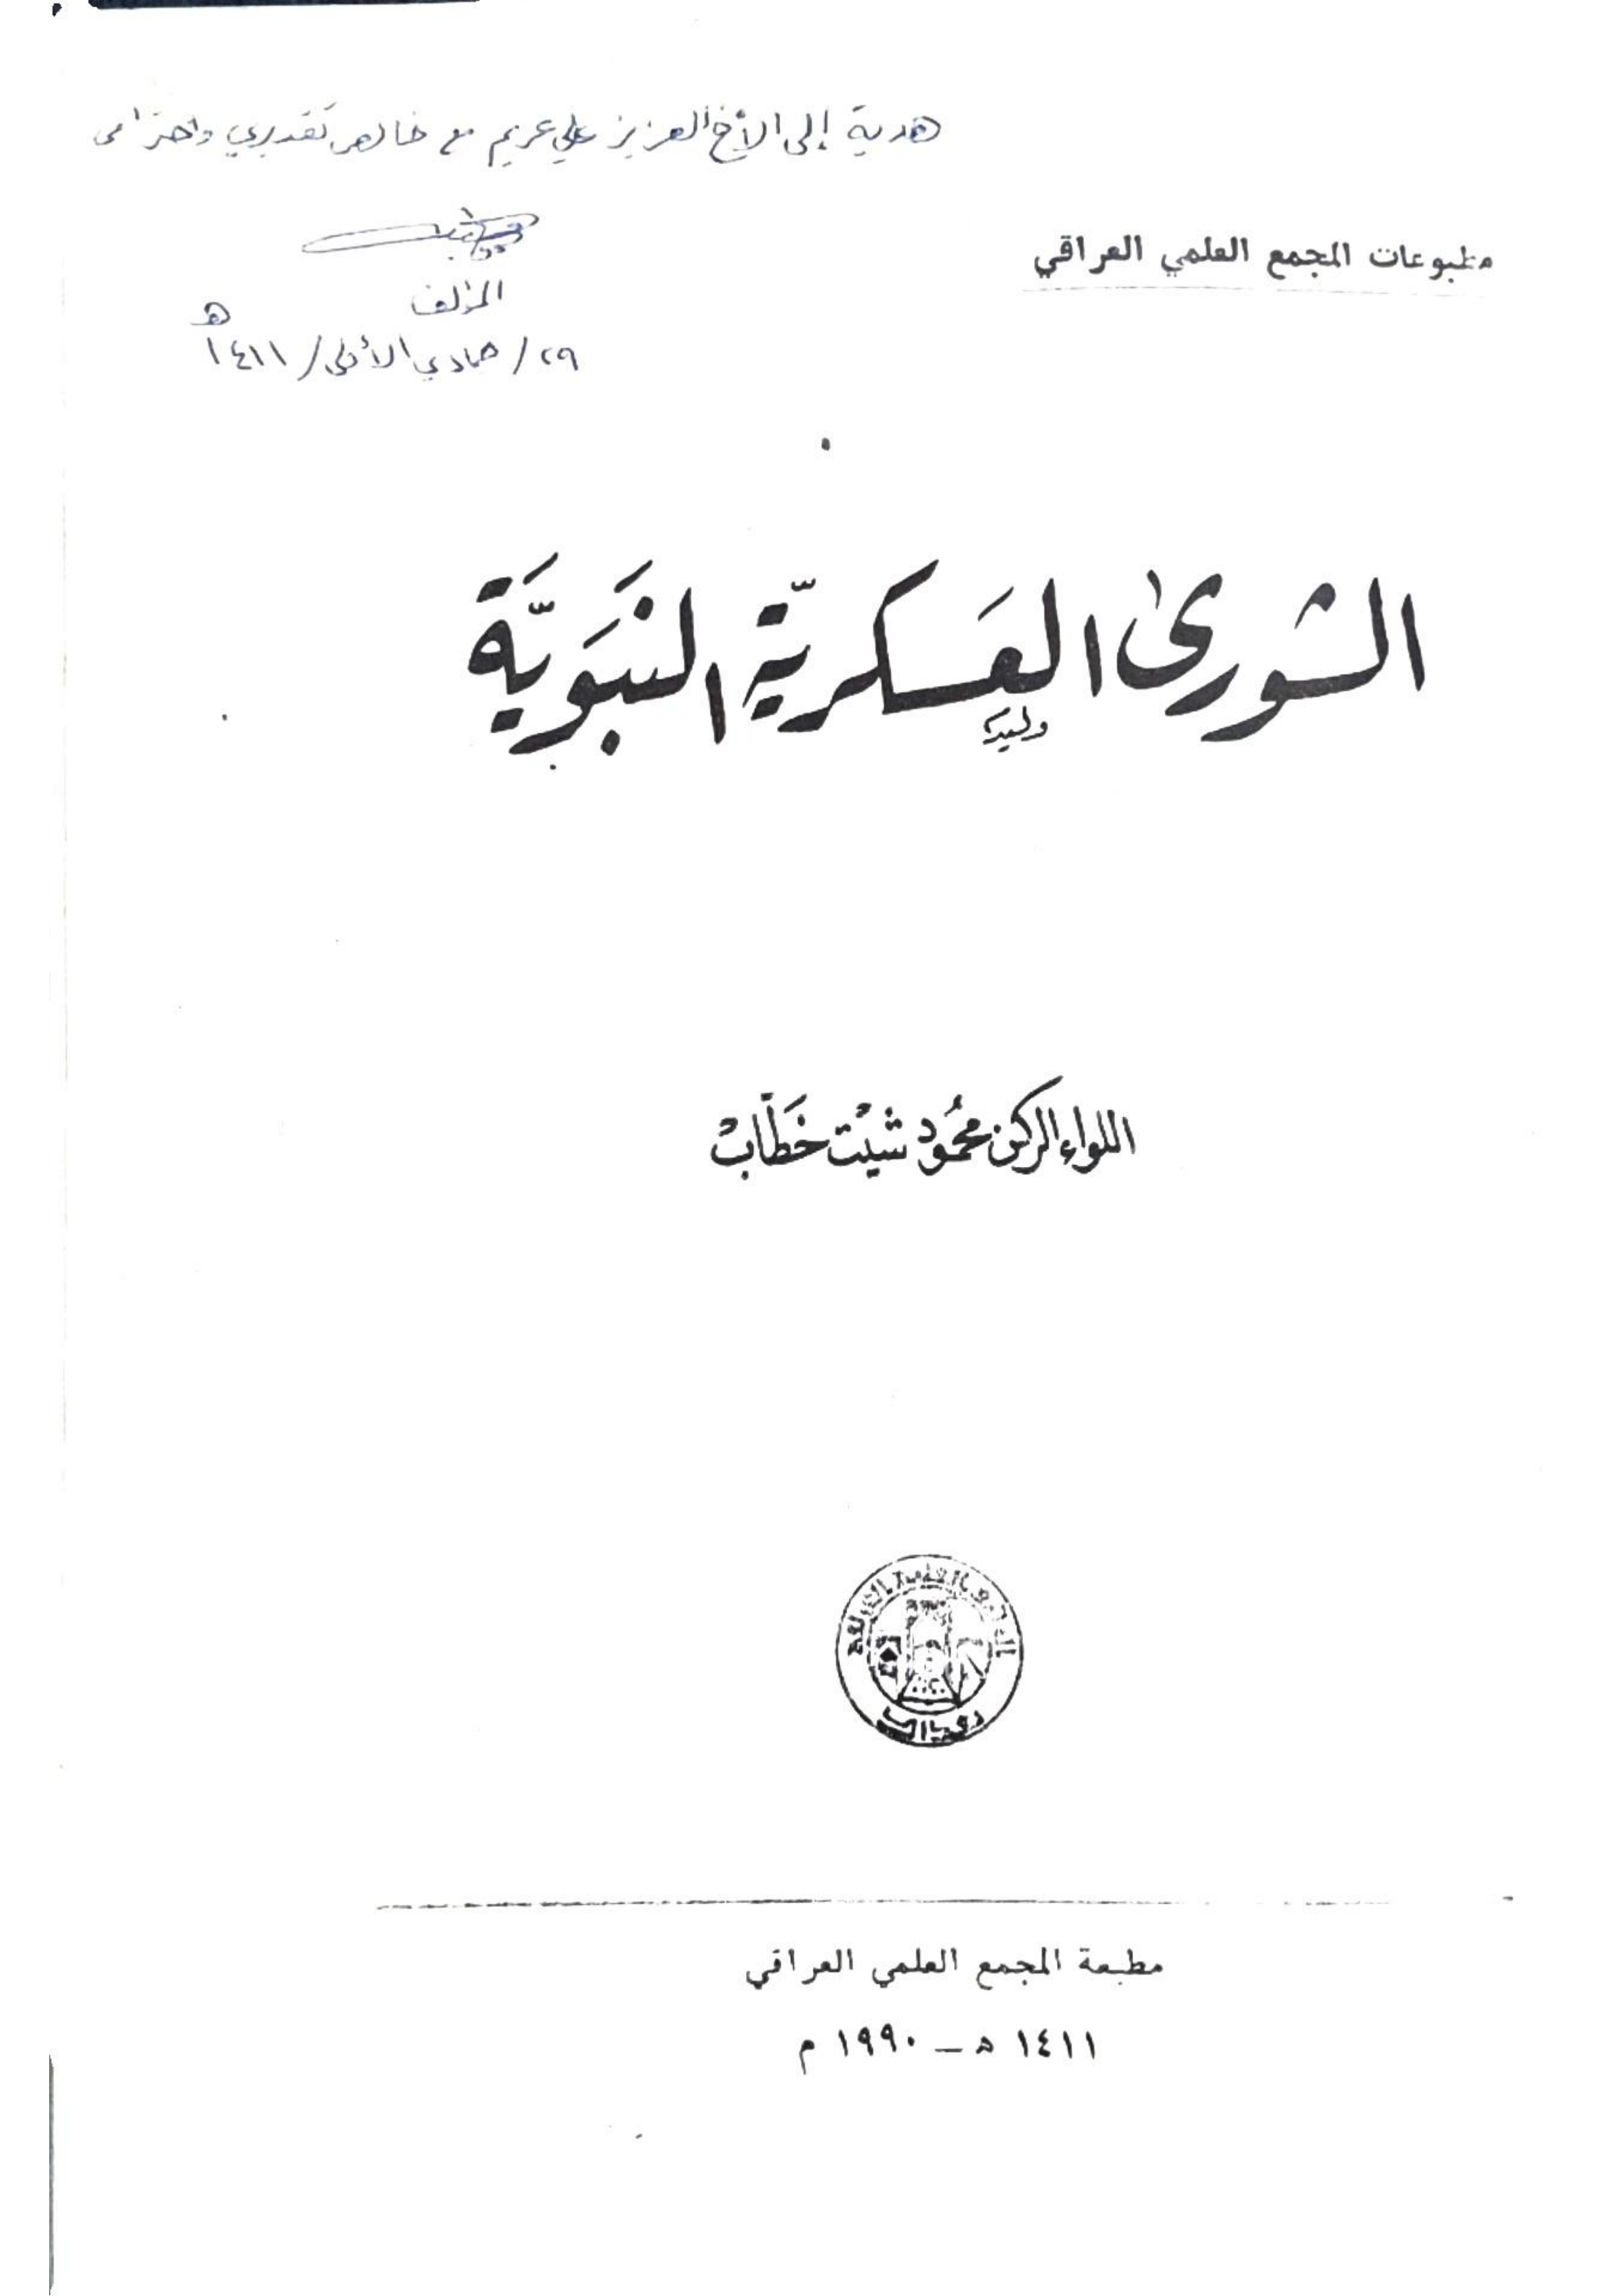 هدية إلى الأخ العزيز علي عريم مع خالص تقديري واحترامي
المؤلف
٢٩/ جمادى الأولى/ ١٤١١ هـ
مطبوعات المجمع العلمي العراقي
الشورىٰ العَسكريّة النَبَويَّة
وليد
اللواء الركن محمُود شيْت خَطّابْ
مطبعة المجمع العلمي العراقي
١٤١١ هـ ــ ١٩٩٠ م